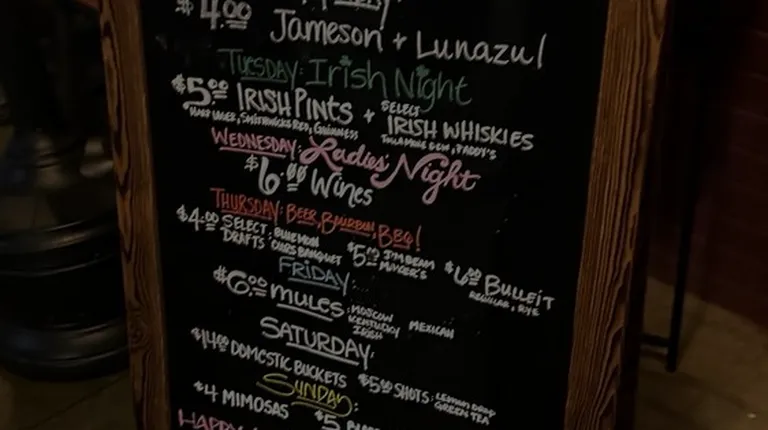 $4.00 Jameson + Lunazul
TUESDAY: Irish Night
$5.00 IRISH PINTS + SELECT IRISH WHISKIES
HARP LAGER, SMITHWICKS RED, GUINNESS TULLAMORE DEW, PADDY'S
WEDNESDAY: Ladies' Night
$6.00 Wines
THURSDAY: BEER, BOURBON, BBQ!
$4.00 SELECT DRAFTS: BLUE MOON COORS BANQUET $5.00 JIM BEAM $6.00 BULLEIT
REGULAR, RYE
FRIDAY:
$6.00 MULES: MOSCOW MEXICAN
KENTUCKY
IRISH
SATURDAY:
$14.00 DOMESTIC BUCKETS $5.00 SHOTS: LEMON DROP
GREEN TEA
SUNDAY:
$4 MIMOSAS $5
HAPPY